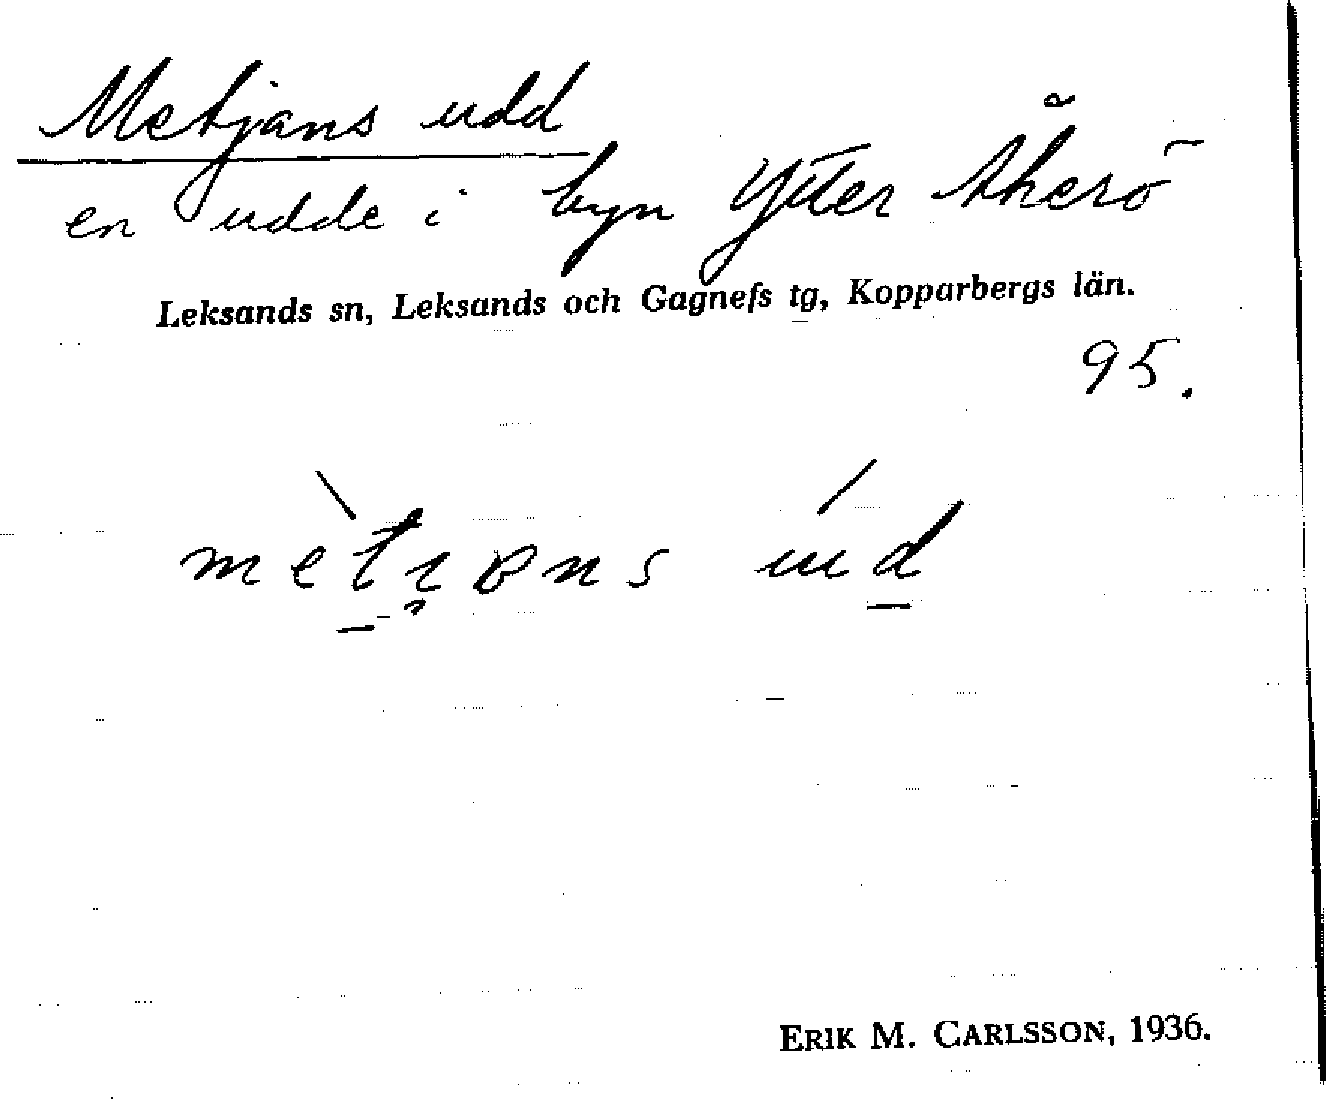 Metjans udd
en udde i byn Ytter Åkerö
Leksands sn, Leksands och Gagnefs tg, Kopparbergs län.
95.
ERIK M. CARLSSON, 1936.